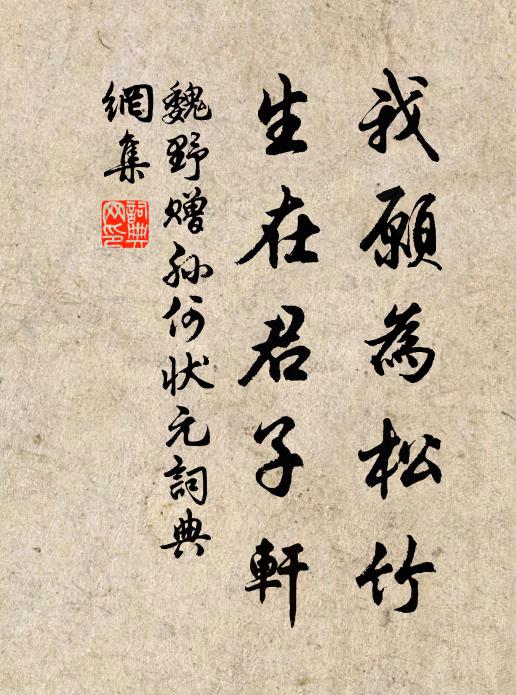 我願為松竹
生在君子軒
魏野贈孫何狀元詞典
網集
詞典
网印